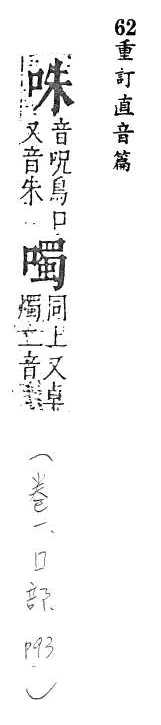 62重訂直音篇
咮音呪鳥口又音朱
噣同上又卓燭二音
(卷一、口部 P93)